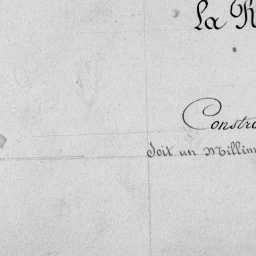 la R
Constr
soit un Millim